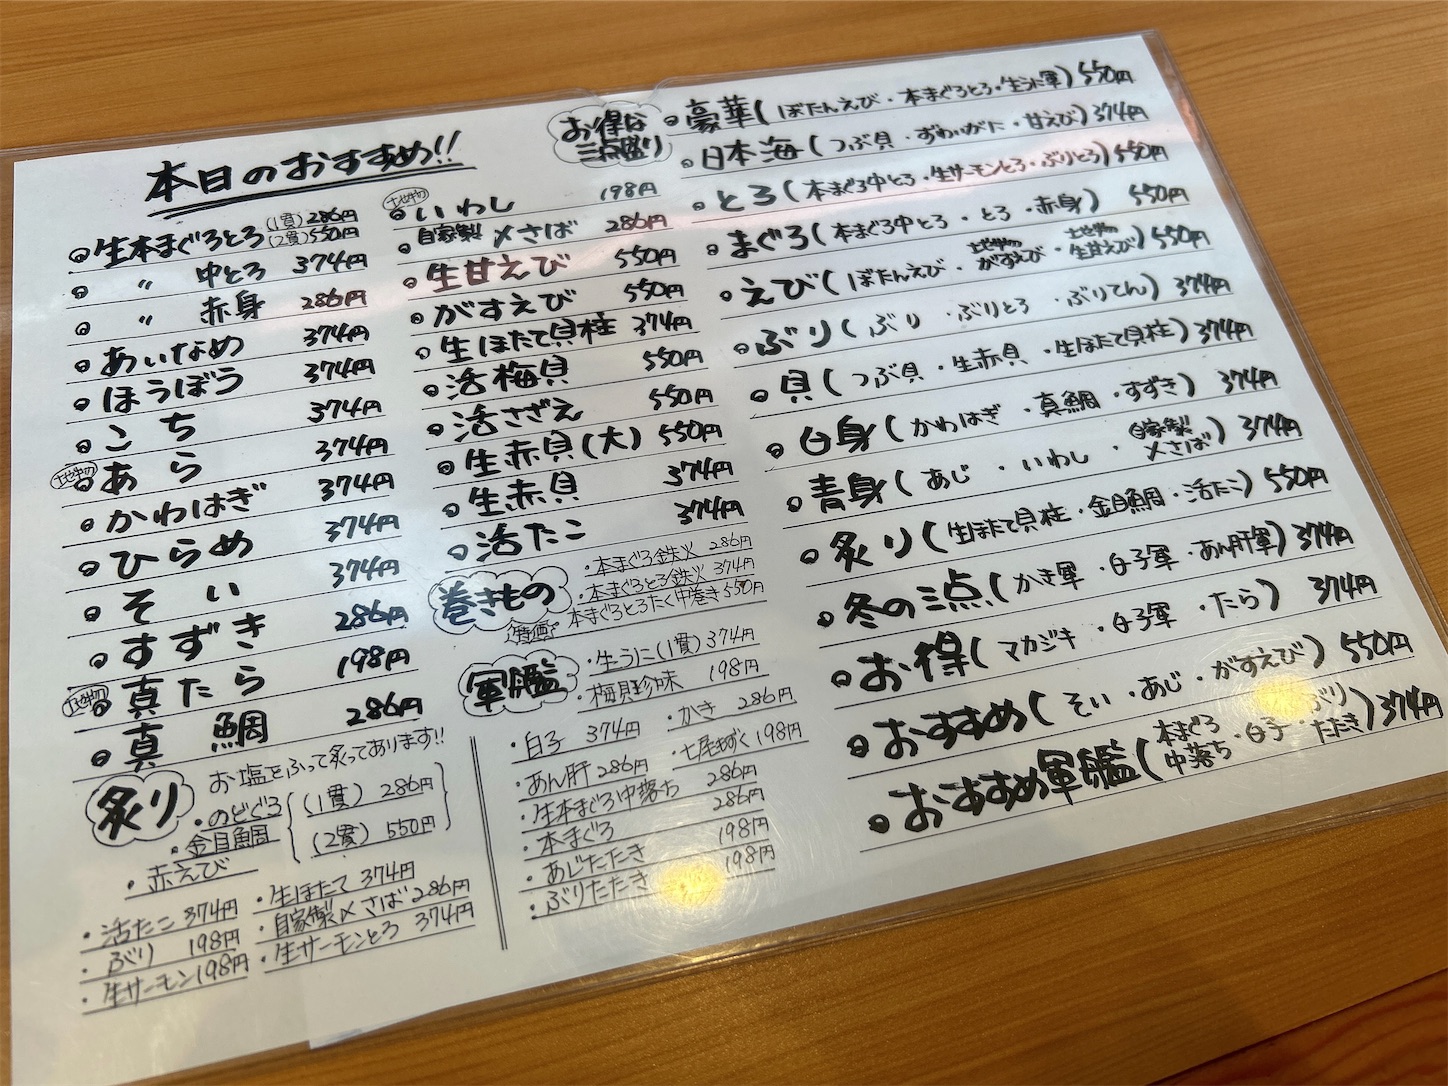 本日のおすすめ!!
生本まぐろとろ (1貫) 286円
(2貫) 550円
〃 中とろ 374円
〃 赤身 286円
あいなめ 374円
ほうぼう 374円
こち 374円
地物 あら 374円
かわはぎ 374円
ひらめ 374円
そい 374円
すずき 286円
地物 真たら 198円
真鯛 286円
地物 いわし 198円
自家製〆さば 286円
生甘えび 550円
がすえび 550円
生ほたて貝柱 374円
活梅貝 550円
活さざえ 550円
生赤貝(大) 550円
生赤貝 374円
活たこ 374円
巻きもの
・本まぐろ鉄火 286円
・本まぐろとろ鉄火 374円
特価 本まぐろとろたく中巻き 550円
軍艦
・生うに(1貫) 374円
・梅貝珍味 198円
・白子 374円
・かき 286円
・あん肝 286円
・七尾もずく 198円
・生本まぐろ中落ち 286円
・本まぐろ 286円
・あじたたき 198円
・ぶりたたき 198円
炙り
お塩をふって炙ってあります!!
・のどぐろ
・金目鯛
・赤えび
(1貫) 286円
(2貫) 550円
・活たこ 374円
・ぶり 198円
・生サーモン 198円
・生ほたて 374円
・自家製〆さば 286円
・生サーモンとろ 374円
お得な
三点盛り
豪華(ぼたんえび・本まぐろとろ・生うに軍) 550円
日本海(つぶ貝・ずわいがに・甘えび) 374円
とろ(本まぐろ中とろ・生サーモンとろ・ぶりとろ) 550円
まぐろ(本まぐろ中とろ・とろ・赤身) 550円
えび(ぼたんえび・地物がすえび・地物生甘えび) 550円
ぶり(ぶり・ぶりとろ・ぶりてん) 374円
貝(つぶ貝・生赤貝・生ほたて貝柱) 374円
白身(かわはぎ・真鯛・すずき) 374円
青身(あじ・いわし・自家製〆さば) 374円
炙り(生ほたて貝柱・金目鯛・活たこ) 550円
冬の三点(かき軍・白子軍・あん肝軍) 374円
お得(マカジキ・白子軍・たら) 374円
おすすめ(そい・あじ・がすえび) 550円
おすすめ軍艦(本まぐろ中落ち・白子・ぶりたたき) 374円